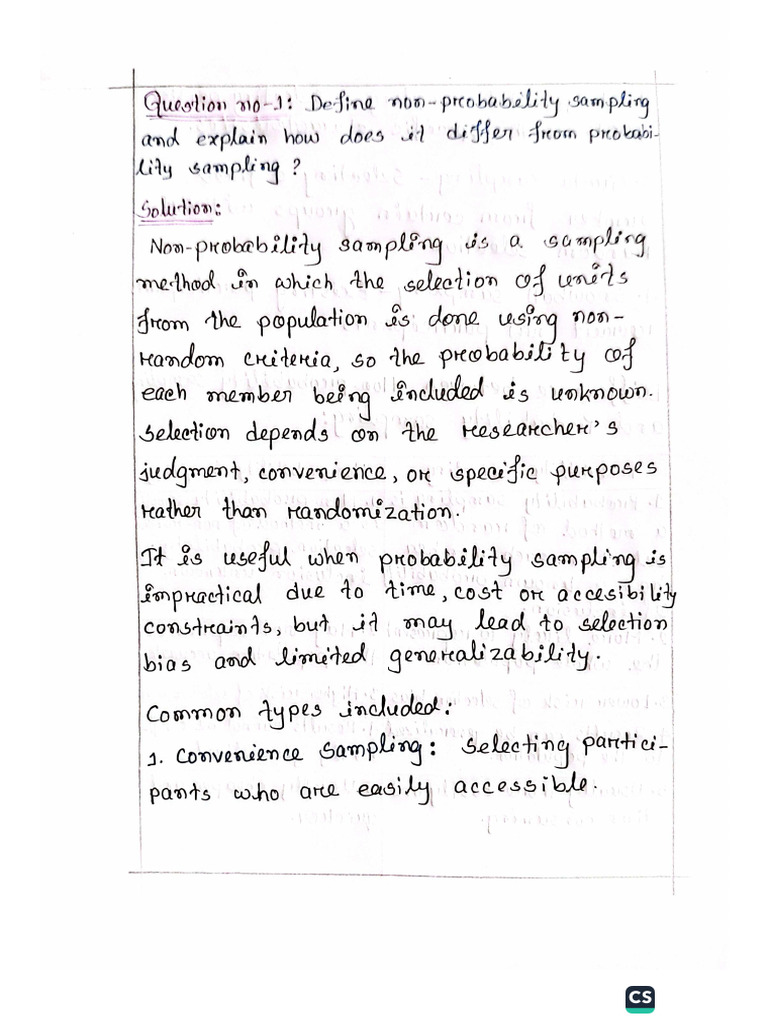 Question no-1: Define non-probability sampling
and explain how does it differ from probabi-
lity sampling?
Solution:
Non-probability sampling is a sampling
method in which the selection of units
from the population is done using non-
random criteria, so the probability of
each member being included is unknown.
Selection depends on the researcher's
judgment, convenience, or specific purposes
rather than randomization.
It is useful when probability sampling is
impractical due to time, cost or accesibility
constraints, but it may lead to selection
bias and limited generalizability.
Common types included:
1. Convenience sampling: Selecting partici-
pants who are easily accessible.
CS